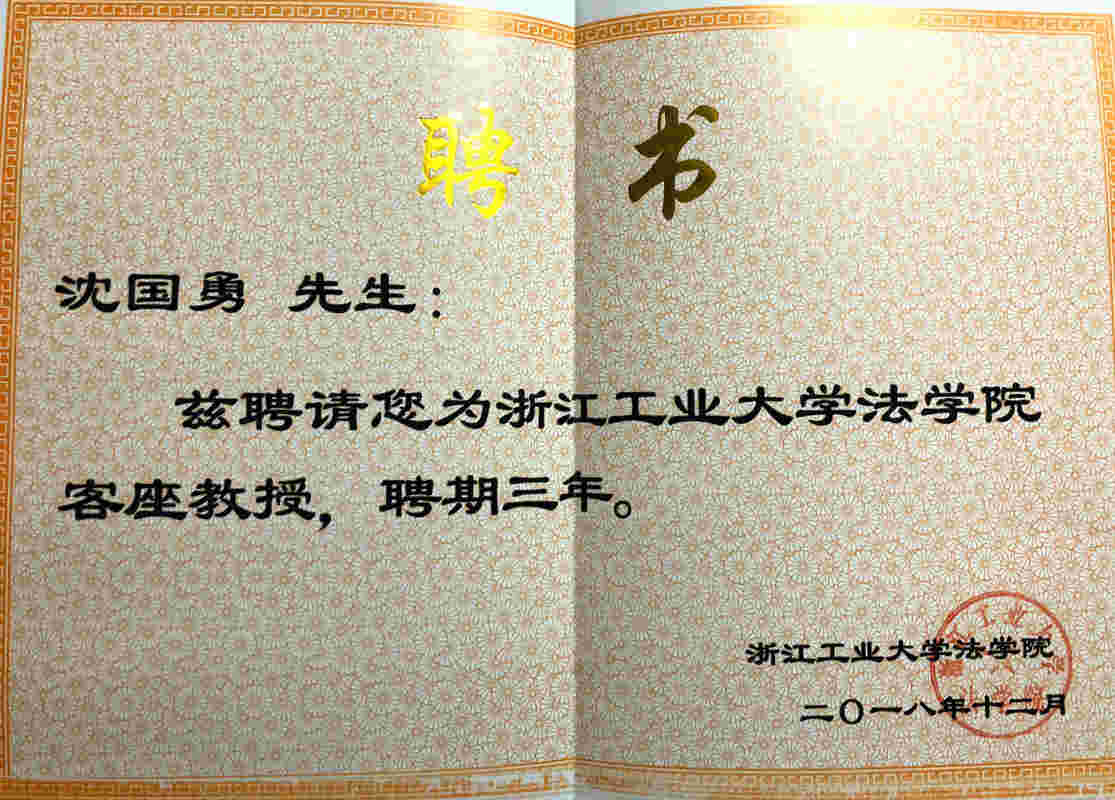 聘书
沈国勇 先生：
兹聘请您为浙江工业大学法学院
客座教授，聘期三年。
浙江工业大学法学院
二〇一八年十二月